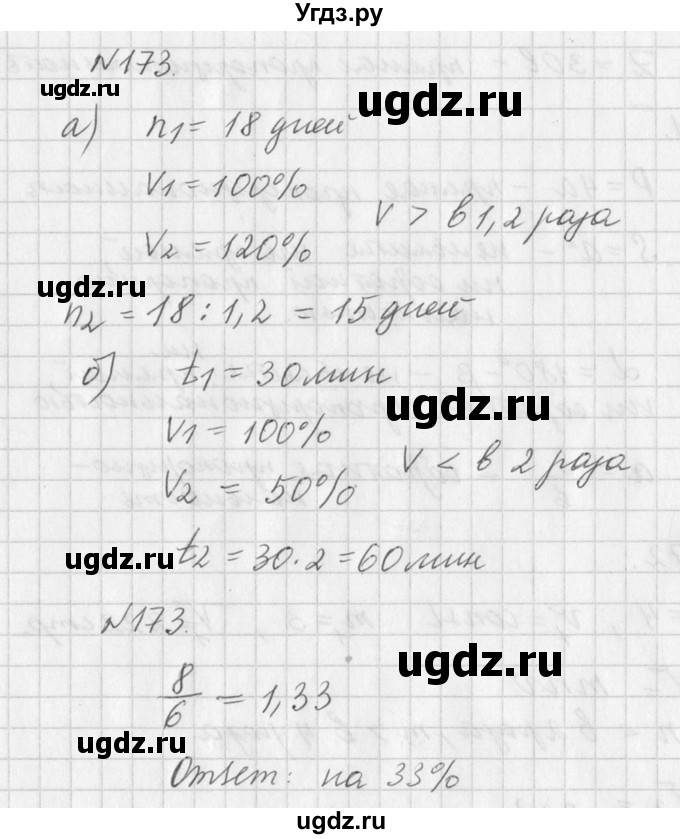 Угдз.ру
N173.
ugdz.ru
ugdz.ru
а) n1 = 18 дней
V1 = 100%
V > в 1,2 раза
V2 = 120%
ugdz.ru
n2 = 18 : 1,2 = 15 дней
б) t1 = 30 мин
ugdz.ru
V1 = 100%
V < в 2 раза
V2 = 50%
ugdz.ru
t2 = 30 · 2 = 60 мин
N173.
ugdz.ru
8/6 = 1,33
ugdz.ru
Ответ: на 33%
ugdz.ru